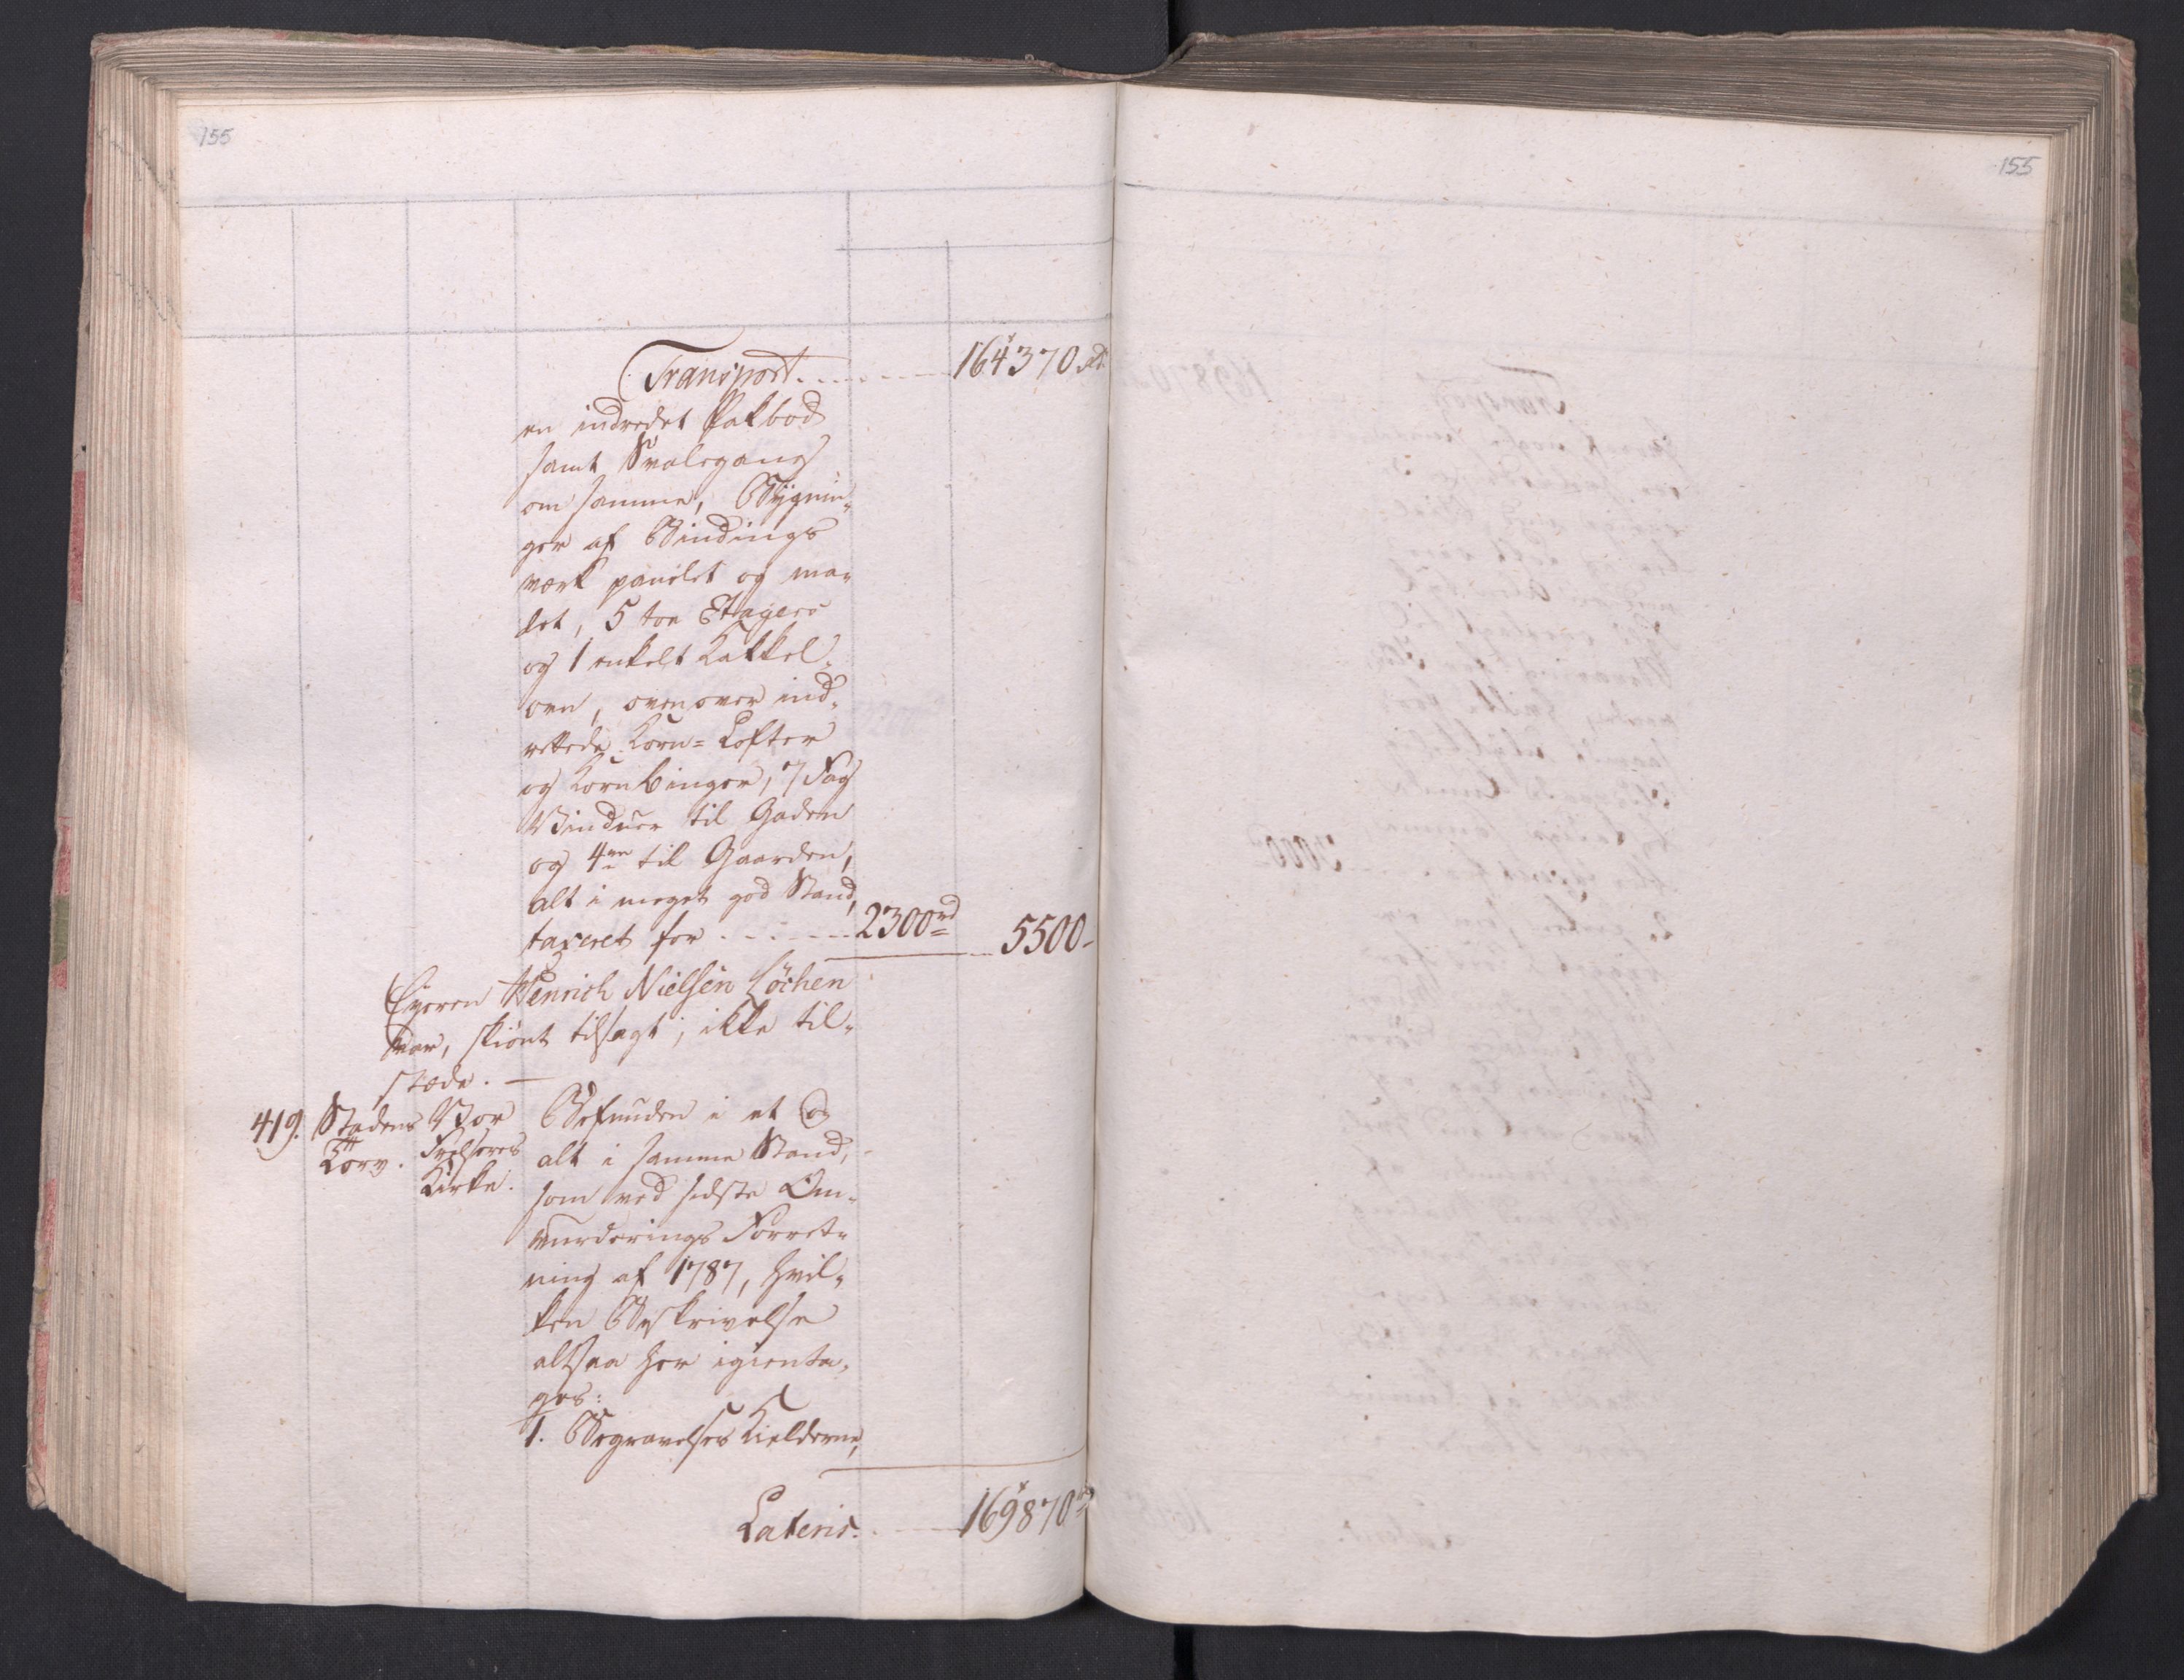 155
155
Transport . . . . . . 164370 rd
en indredet Pakbod
samt Svalegang
om samme, Bÿgnin-
ger af Bindings
værk panelet og ma-
let, 5 toe Etagers
og 1 enkelt Kakkel-
ovn, ovenover ind-
rettede Korn-Lofter
og Kornbinger, 7 Fag
Vinduer til Gaden
og 4re til Gaarden,
alt i meget god Stand,
taxeret for . . . . . 2300rd 5500-
Eyeren Henrich Nielsen Löchen
var, skiönt tilsagt, ikke til-
stæde. —
419. Stadens Torv. Vor Frelseres Kirke. Befunden i et og
alt i samme Stand,
som ved sidste Om-
vurderings Forret-
ning af 1787, hvil-
ken Beskrivelse
altsaa her igienta-
ges:
1. Begravelses Kielderne,
Lateris. . . 169870rd